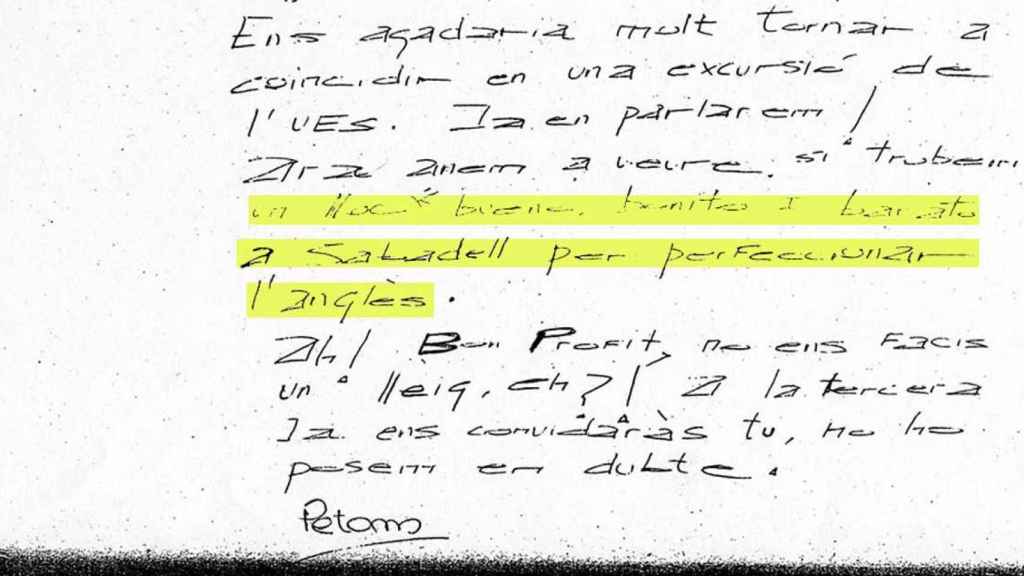 Ens agadaria molt tornar a
coincidir en una excursió de
l'UES. Ja en parlarem!
Ara anem a veure. si trobem
un lloc bueno, bonito i barato
a Sabadell per perfeccionar
l'anglès.
Ah! Bon Profit, no ens facis
un lleig, eh?! A la tercera
Ja ens convidaràs tu, no ho
posem en dubte.
Petons